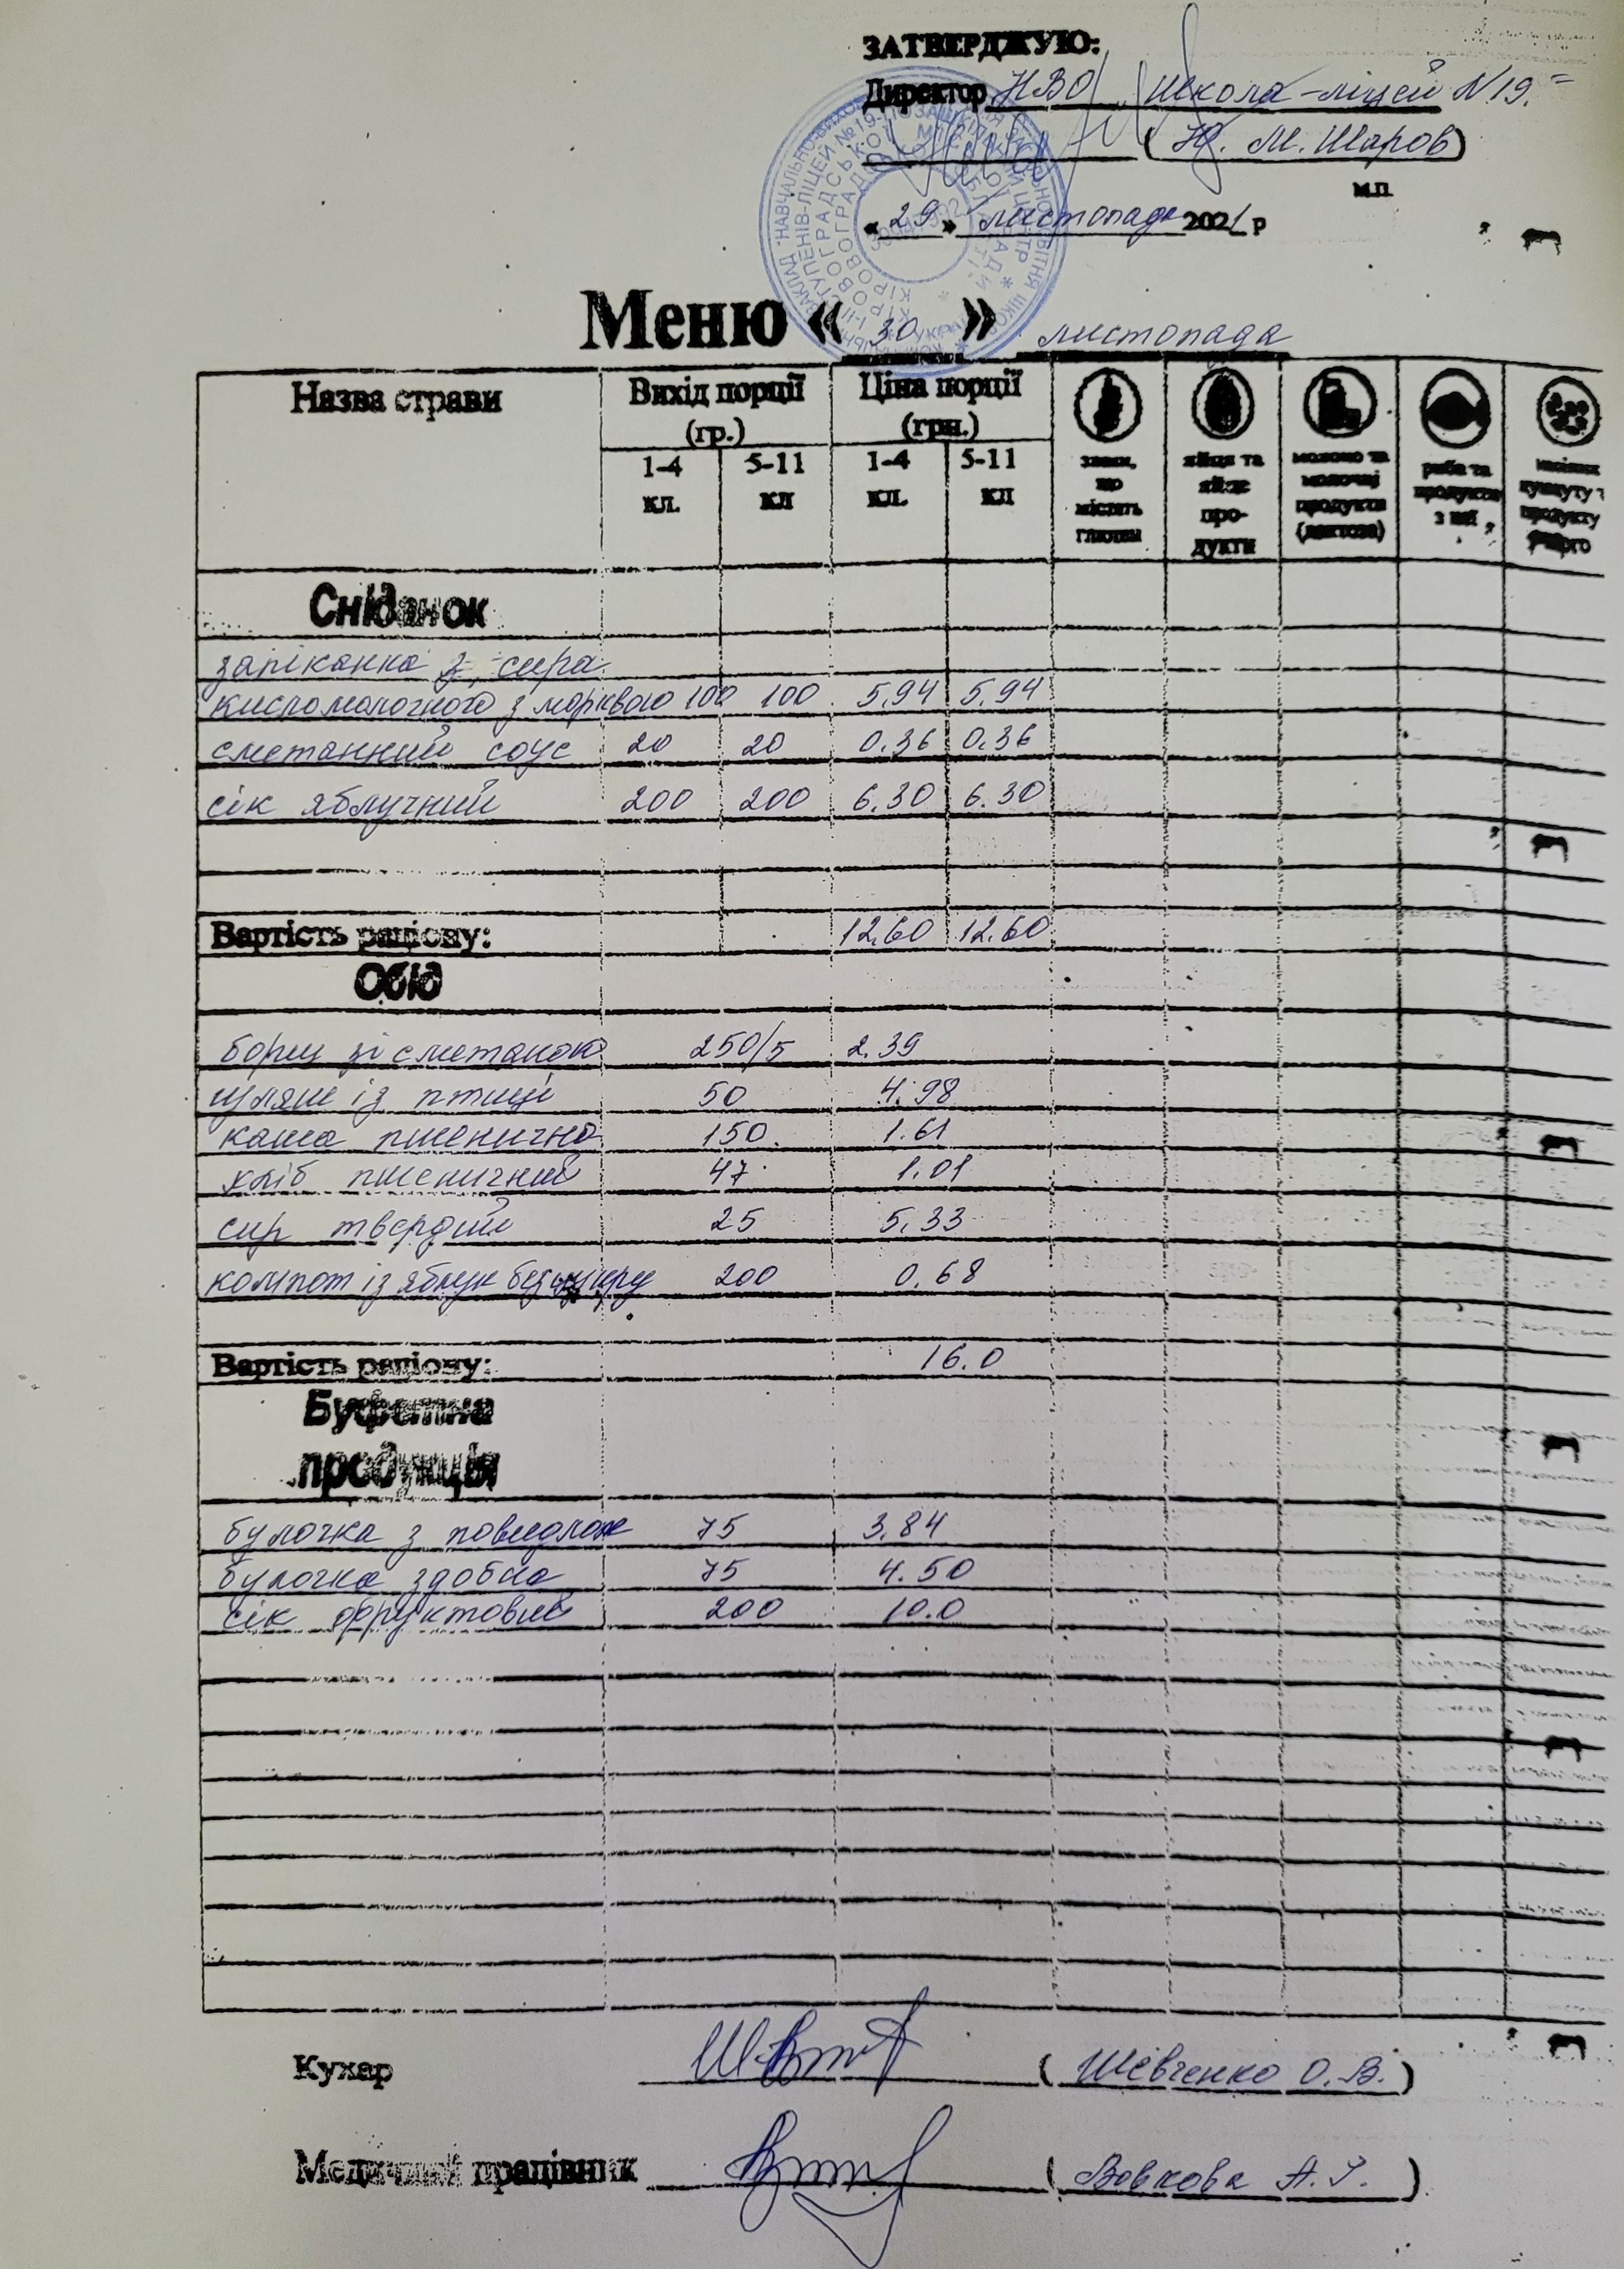 ЗАТВЕРДЖУЮ:
Директор НВО "Школа-ліцей №19"
(Ю. М. Шаров)
м.п.
«29» листопада 2021 р
Меню «30» листопада
Назва страви Вихід порції (гр.) Ціна порції (грн.)
1-4 кл. 5-11 кл 1-4 кл. 5-11 кл
злаки, що містять глютен
яйця та яйце продукти
молоко та молочні продукти (лактоза)
риба та продукти з неї
Сніданок
запіканка з сира
кисломолочного з морквою 100 100 5,94 5,94
сметанний соус 20 20 0.36 0.36
сік яблучний 200 200 6.30 6.30
Вартість раціону: 12.60 12.60
Обід
борщ зі сметаною 250/5 2.39
гуляш із птиці 50 4.98
каша пшенична 150 1.61
хліб пшеничний 47 1.01
сир твердий 25 5.33
компот із яблук без цукру 200 0.68
Вартість раціону: 16.0
Буфетна
продукція
булочка з повидлом 75 3.84
булочка здобна 75 4.50
сік фруктовий 200 10.0
Кухар (Шевченко О.В.)
Медичний працівник (Вовкова А.Г.)